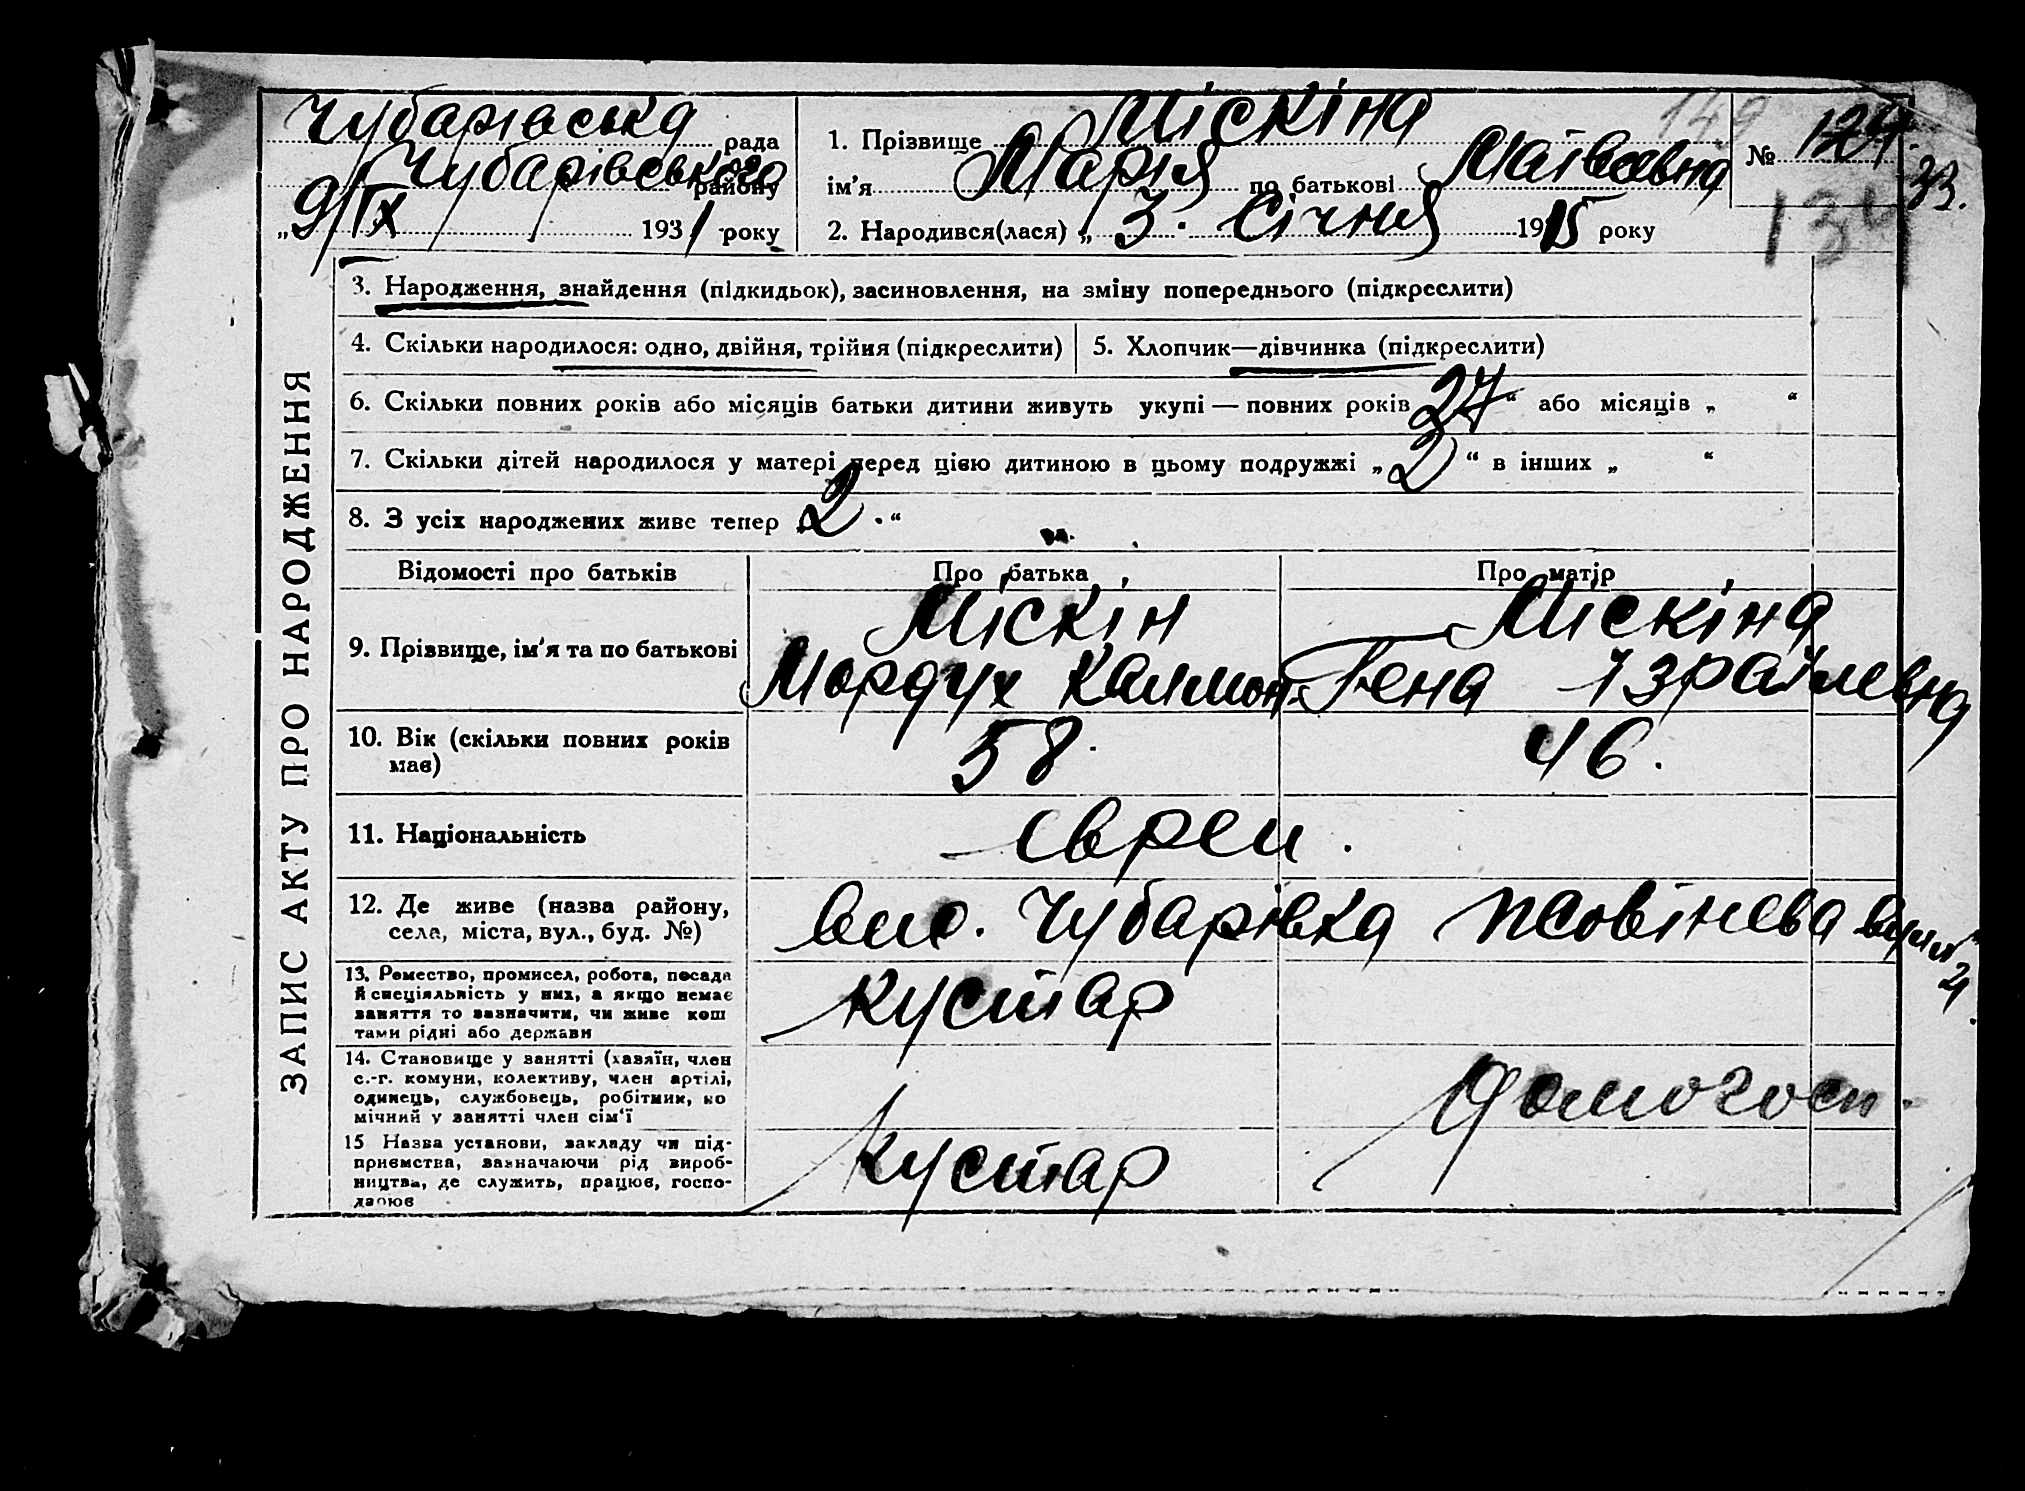 Чубарівська рада
Чубарівського району
„9/IX 1931 року
1. Прізвище Міскіна
ім’я Марія по батькові Матвеевна
2. Народився(лася) „3. Січня 1915 року
149
№ 124.
33.
134
ЗАПИС АКТУ ПРО НАРОДЖЕННЯ
3. Народження, знайдення (підкидьок), засиновлення, на зміну попереднього (підкреслити)
4. Скільки народилося: одно, двійня, трійня (підкреслити)
5. Хлопчик—дівчинка (підкреслити)
6. Скільки повних років або місяців батьки дитини живуть укупі — повних років 27“ або місяців „ “
7. Скільки дітей народилося у матері перед цією дитиною в цьому подружжі „2“ в інших „ “
8. З усіх народжених живе тепер „2.“
Відомості про батьків
Про батька
Про матір
9. Прізвище, ім’я та по батькові
Міскін
Мордух Калмон.
Міскіна
Гена Ізраїлевна
10. Вік (скільки повних років
має)
58.
46.
11. Національність
Євреи.
12. Де живе (назва району,
села, міста, вул., буд. №)
Чубарівка Жовтнева
13. Ремество, промисел, робота, посада
й спеціяльність у них, а якщо немає
заняття то зазначити, чи живе кош
тами рідні або держави
кустар
14. Становище у занятті (хазяїн, член
с.-г. комуни, колективу, член артілі,
одинець, службовець, робітник, по
мічний у занятті член сім’ї
домогосп.
15 Назва установи, закладу чи під-
приємства, зазначаючи рід вироб-
ництва, де служить, працює, госпо-
дарює
Кустар